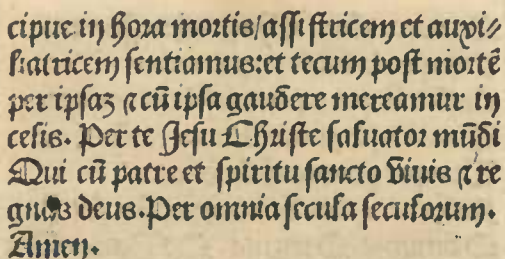 cipue in hora mortis/assistricem et auxi⸗
liatricem sentiamus:et tecum post mortē
per ipsaʒ ⁊ cū ipsa gaudere mereamur in
celis. Per te Jesu Christe saluator mūdi
Qui cū patre et spiritu sancto viuis ⁊ re
gnas deus. Per omnia secula seculorum.
Amen.